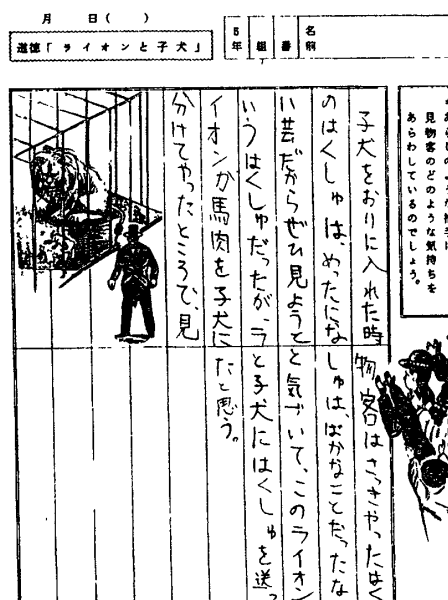 月　日（　）
道徳「ライオンと子犬」
5年　組　番　名前
見物客のどのような気持ちを
あらわしているのでしょう。
子犬をおりに入れた時
のはくしゅは、めったにな
い芸だからぜひ見ようと
いうはくしゅだったが、ラ
イオンが馬肉を子犬に
分けてやったところで、見
物客はさっきやったはく
しゅは、ばかなことだったな
と気づいて、このライオン
と子犬にはくしゅを送っ
たと思う。